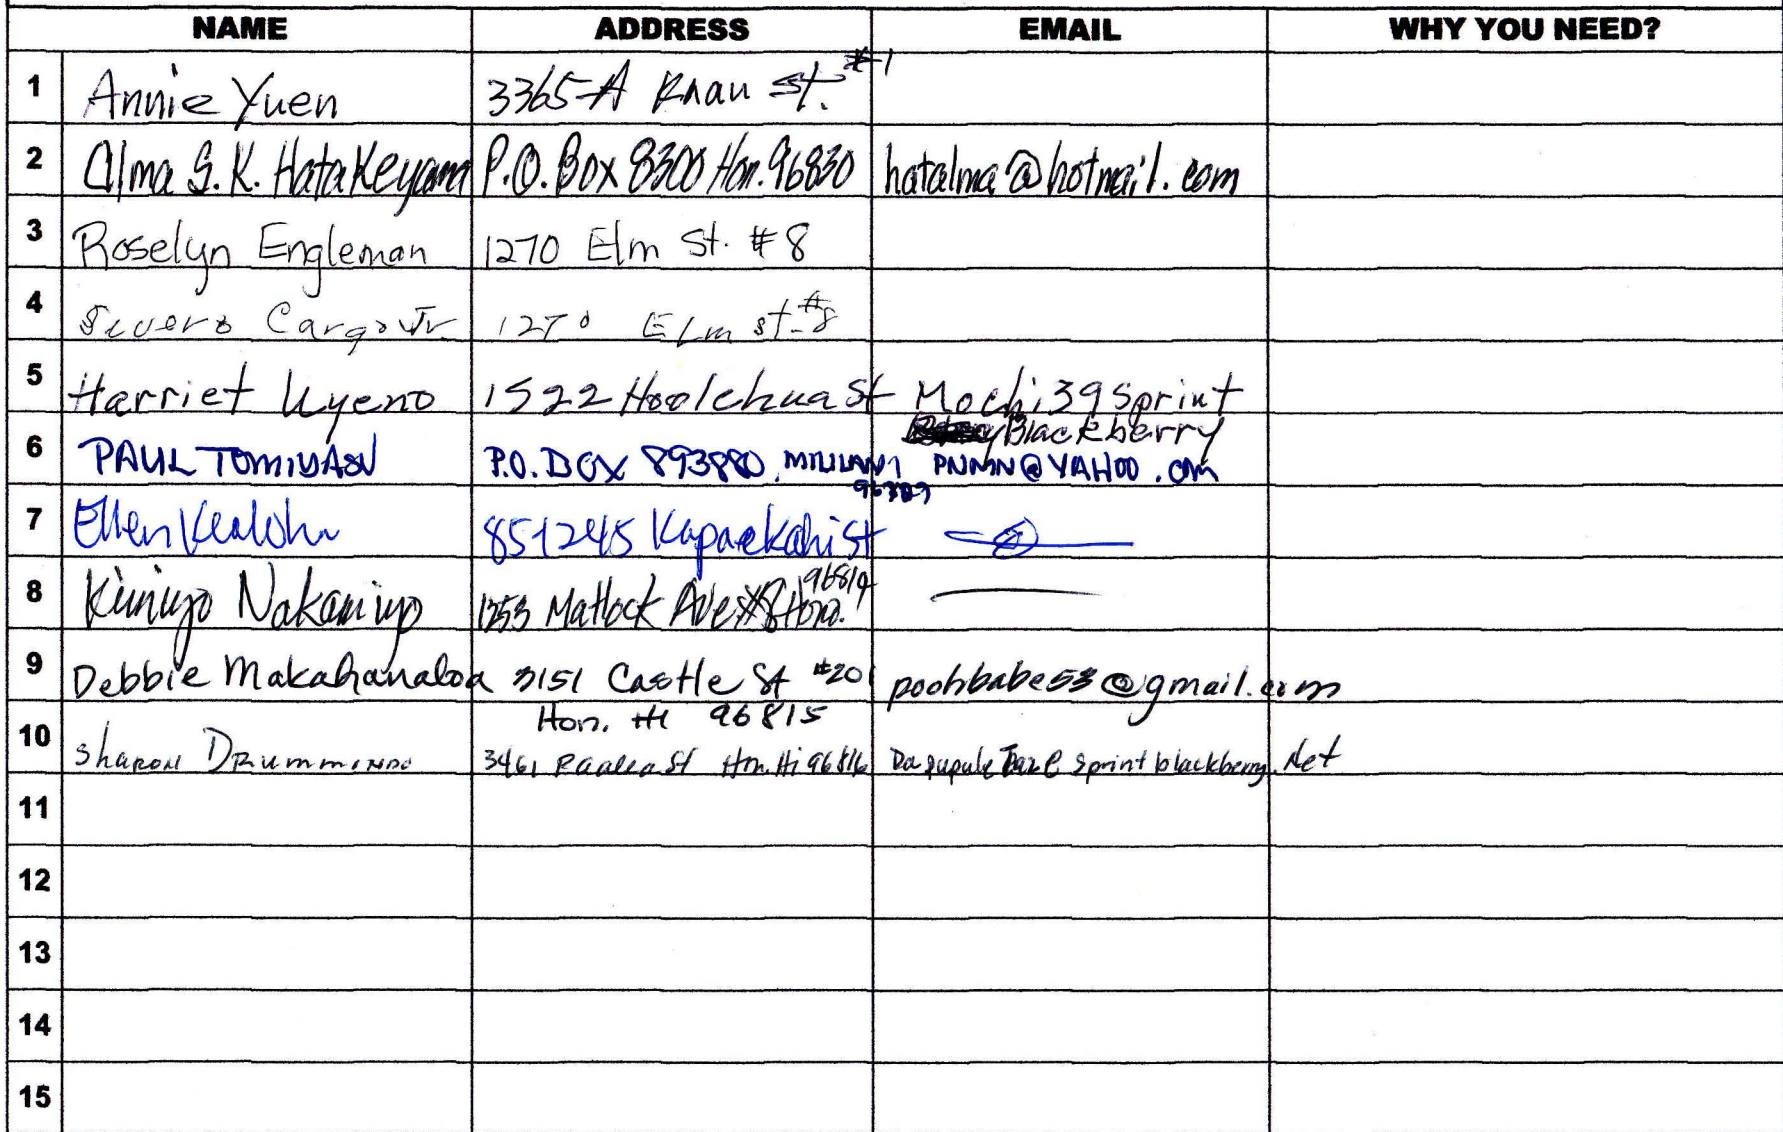 NAME ADDRESS EMAIL WHY YOU NEED?
1 Annie Yuen 3365-A Knau St. #1
2 Alma S.K. Hatakeyama P.O. Box 8300 Hon. 96830 hatalma@hotmail.com
3 Roselyn Engleman 1270 Elm St. #8
4 Cargo Jr. 1270 Elm St. #8
5 Harriet Uyeno 1522 Hoolehua St Mochi39Sprint
Blackberry
6 PAUL TOMIYASU P.O. BOX 893880, MILILANI PNMN@YAHOO.COM
7 Ellen Kealoha 851245 Kapaekahi St
96814
8 Kimiyo 1253 Matlock Ave #8 Hono.
9 Debbie Makahanaloa 3151 Castle St #201 poohbabe53@gmail.com
Hon. HI 96815
10 Sharon 3461 St Hon. Hi 96816 sprintblackberry.Net
11
12
13
14
15